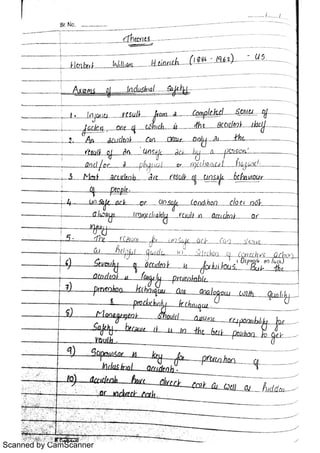 Sr. No.
Theories
Herbert William Heinrich (1844 - 1962) - US
Axioms of Industrial Safety
1. Injuries result from a completed series of
factors, one of which is the accident itself
2. An accident can occur only as the
result of an 'unsafe' act by a person'
and/or a physical or mechanical hazard.
3 Most accidents are result of unsafe behaviour
of people.
4. un safe act or unsafe condition does not
always immediately result in accident or
injury
5. The reasons for unsafe act can serve
as helpful guide in selection of corrective action
6) Severity of accident is fortuitous. But the (Depends on luck)
accident is preventable.
7) prevention techniques are analogous with Quality
& productivity technique
8) Management should assume responsibility for
Safety. because it is in the best position to get
9) Supervisor is key for prevention of
industrial accidents.
10) Accidents have direct cost as well as hidden
or indirect costs.
Scanned by CamScanner